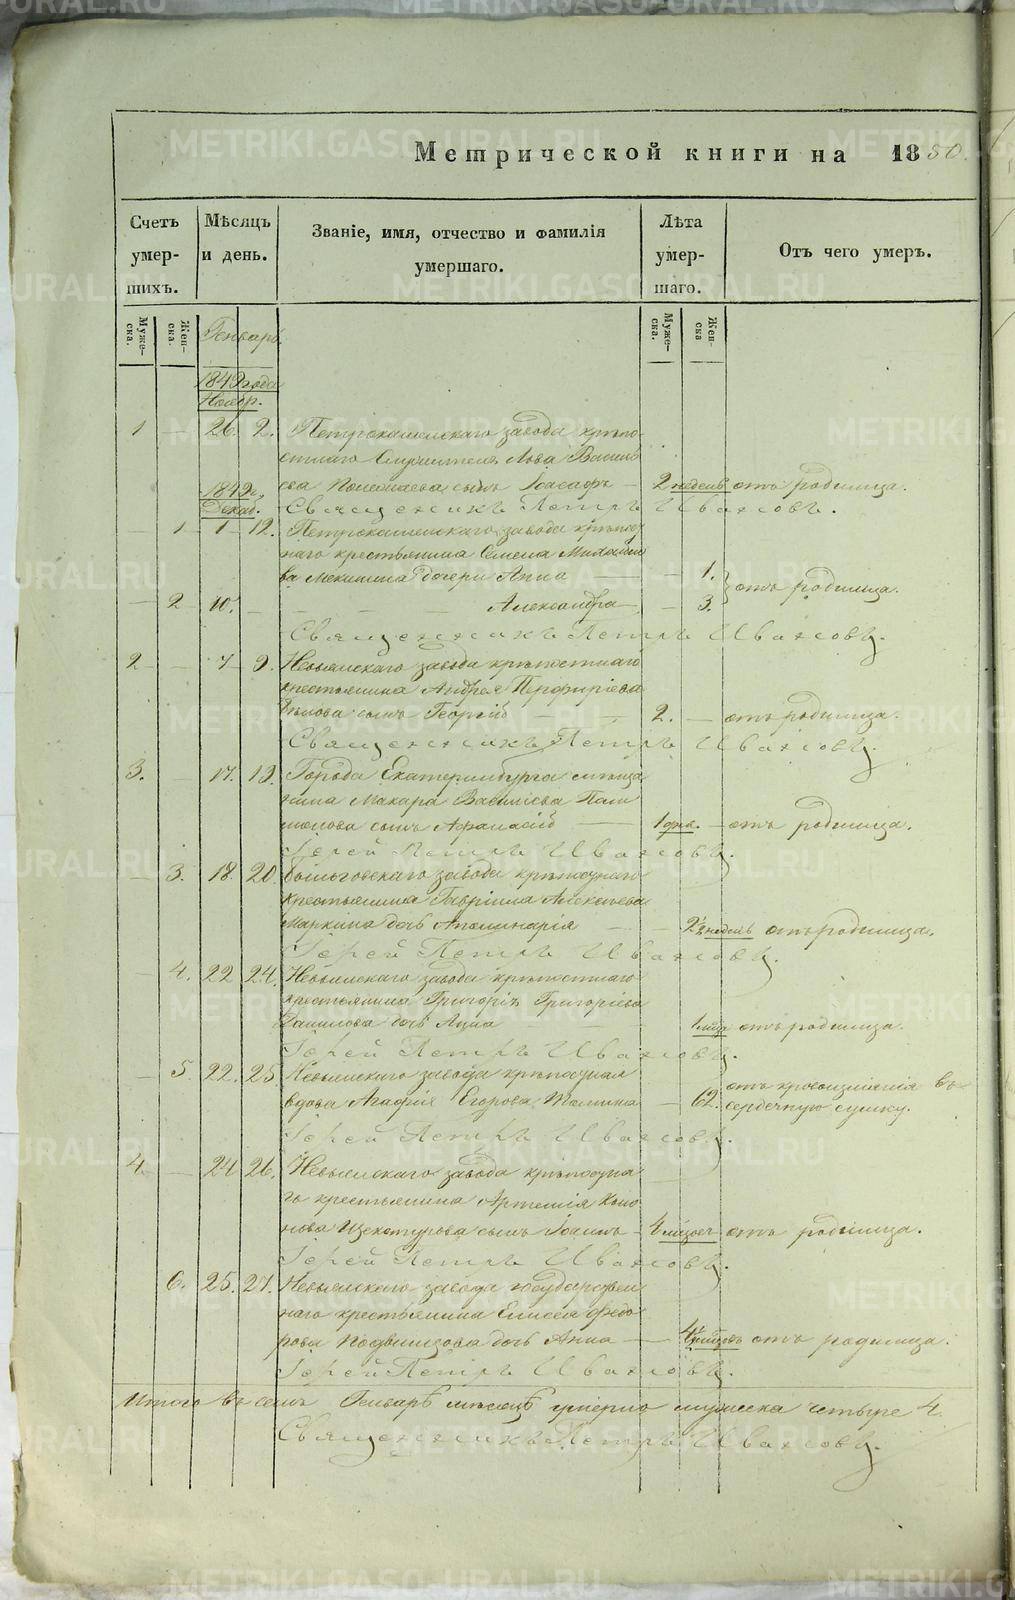 Метрической книги на 1850.
Счетъ умершихъ.
Мѣсяцъ и день.
Званіе, имя, отчество и фамилія умершаго.
Лѣта умершаго.
Отъ чего умеръ.
Мужеска.
Женска.
Генварь.
Мужеска.
Женска
1849 года
Ноябр.
1 — 26. 2. Петрокаменскаго завода крѣпо-
стнаго Служителя Льва Василь
ева сынъ Іоасафъ — 2 недель отъ родимца.
1849 г.
Декаб.
Священникъ Петръ Ивановъ.
— 1 1 12. Петрокаменскаго завода крѣпост
наго крестьянина Семена Михайло
ва дочери Анна — — 1.
отъ родимца.
— 2 10. — — — Александра — 3.
Священникъ Петръ Ивановъ.
2 — 7 9. Невьянскаго завода крѣпостнаго
крестьянина Андрея Перфиріева
сынъ Георгій — — 2. — отъ родимца.
Священникъ Петръ Ивановъ.
3. — 17. 19. Города Екатеринбурга мѣща
нина Макара Василіева
сынъ Афанасій — 1 дня. — отъ родимца.
Іерей Петръ Ивановъ.
— 3. 18. 20. Быньговскаго завода крѣпостнаго
крестьянина Гавріила Алексѣева
Маркина дочь Аполинарія — — 2½ недель отъ родимца.
Іерей Петръ Ивановъ.
— 4. 22 24. Невьянскаго завода крѣпостнаго
крестьянина Григорія Григорьева
Данилова дочь Анна — — 1 мца отъ родимца.
Іерей Петръ Ивановъ.
— 5. 22. 25. Невьянскаго завода крѣпостная
вдова Агафія Егорова — — 62. отъ кровоизліянія въ
сердечную сумку.
Іерей Петръ Ивановъ.
4. — 24 26. Невьянскаго завода крѣпостна
го крестьянина Артемія Коно
нова сынъ Іоаннъ — 4 — отъ родимца.
Іерей Петръ Ивановъ.
6. 25. 27. Невьянскаго завода
наго крестьянина Елисея Федо
рова дочь Анна — — 4 отъ родимца.
Іерей Петръ Ивановъ.
Итого въ семъ Генварѣ мѣсяцѣ умерло мужеска четыре 4.
Священникъ Петръ Ивановъ.
METRIKI.GASO-URAL.RU